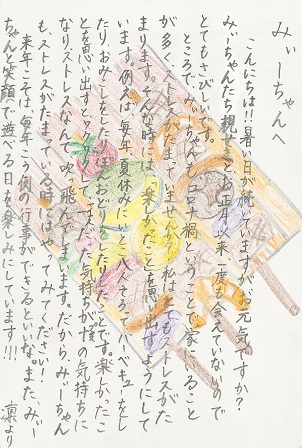 みぃーちゃんへ
こんにちは!!暑い日が続いてますがお元気ですか?
みぃーちゃんたち親せきとお正月以来一度も会えていないので
とてもさびしいです。
ところで、みぃーちゃんはコロナ禍ということで家にいること
が多く、ストレスがたまっていませんか?私はとてもストレスがた
まります。そんな時には、楽しかったことを思い出すようにして
います。例えば、毎年夏休みにいとこでバーベキューをし
たり、おみこしをしたりぼんおどりをしたりしたことです。楽しかったこ
とを思い出すとスッキリして、気持ちが僕の気持ちに
なりストレスなんて吹っ飛んでしまいます。だからみぃーちゃん
も、ストレスがたまっている時にはやってみてください!
来年こそは毎年こう例の行事ができるといいな。また、みぃー
ちゃんと笑顔で遊べる日を楽しみにしています!!!
凛より